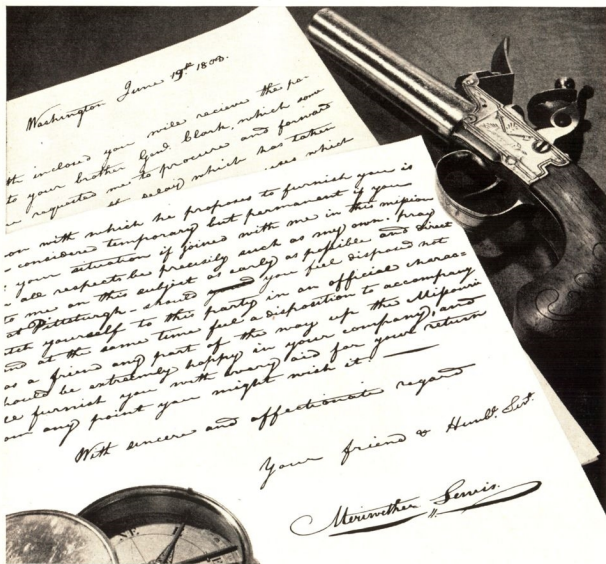 Washington June 19th 1803.
th inclosed you mile recieve the pa-
to your brother Genl. Clark, which some
requested me to procure and forward
delay which has taken
which
on with which he proposes to furnish you is
consider temporary but permanent if you
your situation if joined with me in this mission
all respects be precisely such as my own. pray
to me on this subject as early as possible and direct
at Pittsburgh - should you feel disposed not
tach yourself to this party in an official charac-
nd at the same time feel a disposition to accompany
as a friend any part of the way up the Missouri
hould be extremely happy in your company, and
furnish you with every aid for your return
om any point you might wish it. —
With sincere and affectionate regard
Your friend & Humbl. Servt.
Meriwether Lewis.